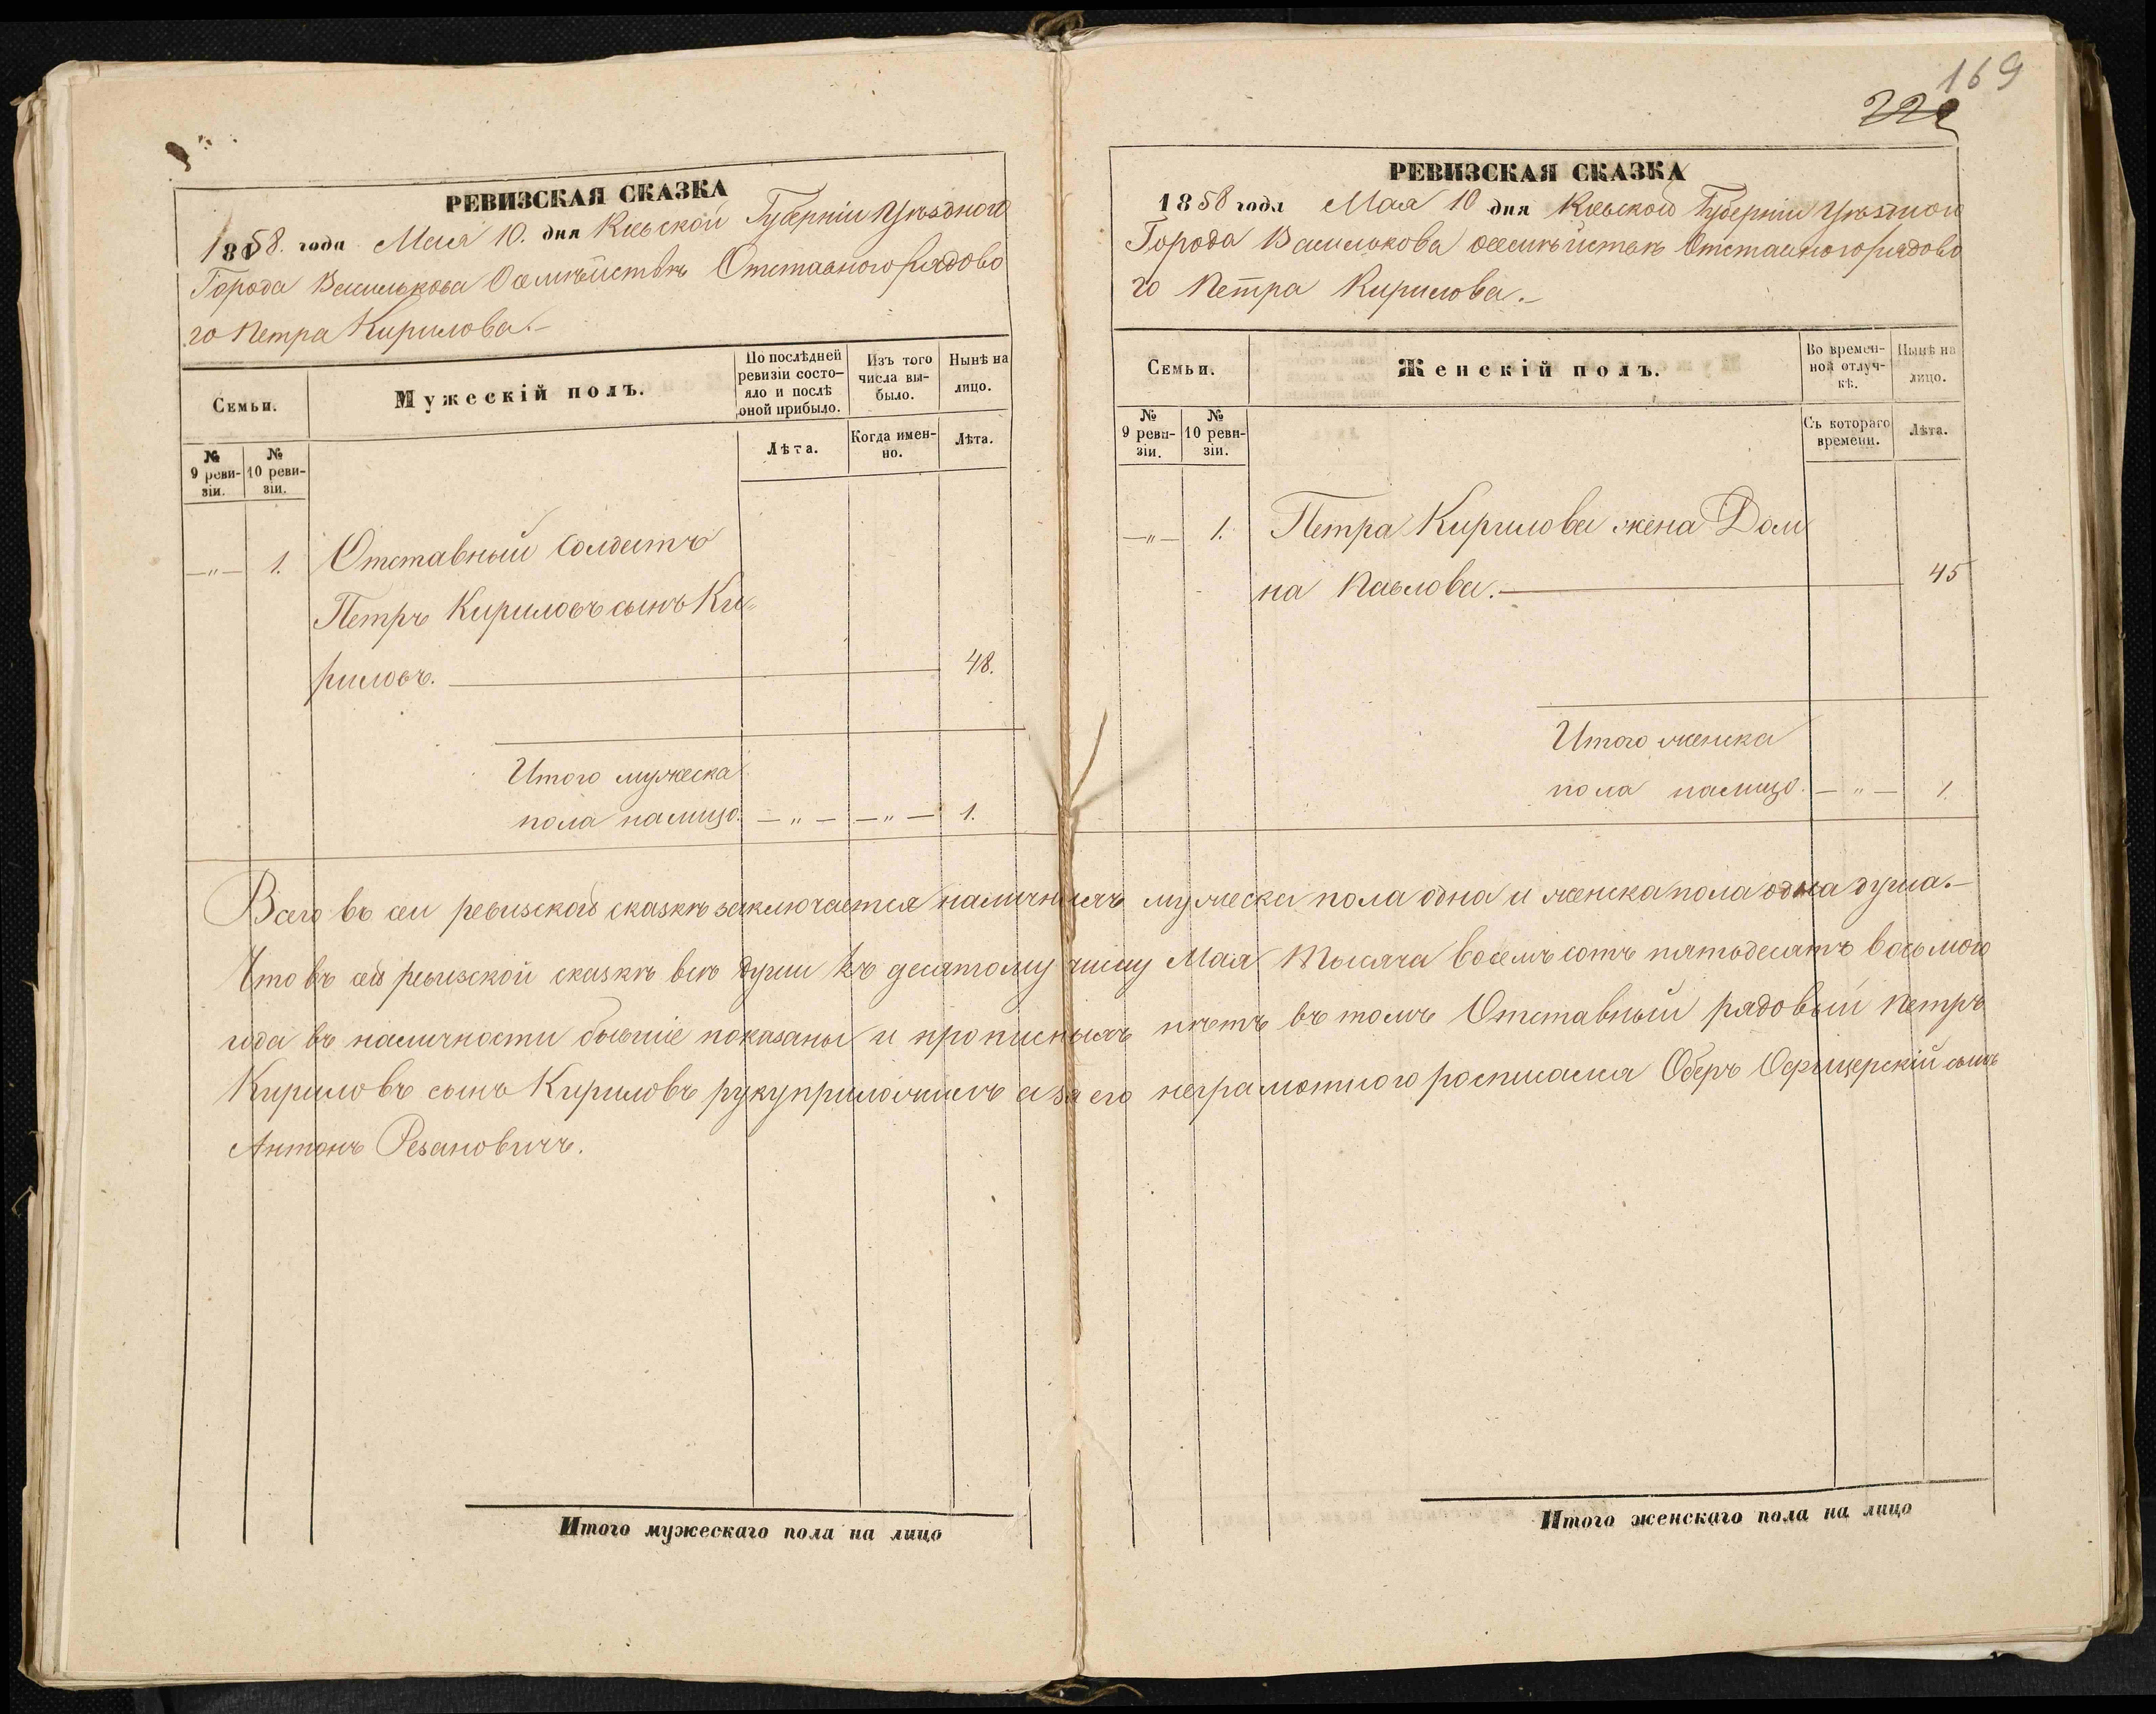 РЕВИЗСКАЯ СКАЗКА
1858. года Мая 10. дня Кіевской Губерніи Уѣзднаго
Города Василькова О семѣйствѣ Отставного рядово
го Петра Кирилова.–
Семьи.
Мужескій полъ.
По послѣдней ревизіи состо–яло и послѣ оной прибыло.
Изъ того числа вы–было.
Нынѣ на лицо.
№ 9 реви–зіи.
№ 10 реви–зіи.
Лѣта.
Когда имен–но.
Лѣта.
—„— 1. Отставный Солдатъ
Петръ Кириловъ сынъ Ки„
риловъ. 48.
Итого мужеска
пола налицо. —„— —„— 1.
169
РЕВИЗСКАЯ СКАЗКА
1858 года Мая 10 дня Кіевской Губерніи Уѣзного
Города Василькова осемѣйствѣ Отставного рядово
го Петра Кирилова.–
Семьи.
Женскій полъ.
Во времен–ной отлуч–кѣ.
Нынѣ на лицо.
№ 9 реви–зіи.
№ 10 реви–зіи.
Съ котораго времени.
Лѣта.
—„— 1. Петра Кирилова жена Дом
на Павлова. 45
Итого женска
пола налицо. —„— 1.
Всего въ сеи ревизской сказкѣ заключается наличныхъ мужеска пола одна и женска пола одна душа.–
Что въ сей ревизской сказкѣ всѣ души къ десятому числу Мая Тысяча восемъ сотъ пятьдесятъ восьмого
года въ наличности бывшіе показаны и прописныхъ нѣтъ въ томъ Отставный рядовый Петръ
Кириловъ сынъ Кириловъ руку приложилъ а за его неграмотного росписался Оберъ Офицерскій сынъ
Антонъ Резановичъ.
Итого мужескаго пола на лицо
Итого женскаго пола на лицо